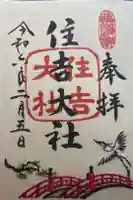 奉拝
住吉大社
住吉
大社
令和六年二月五日